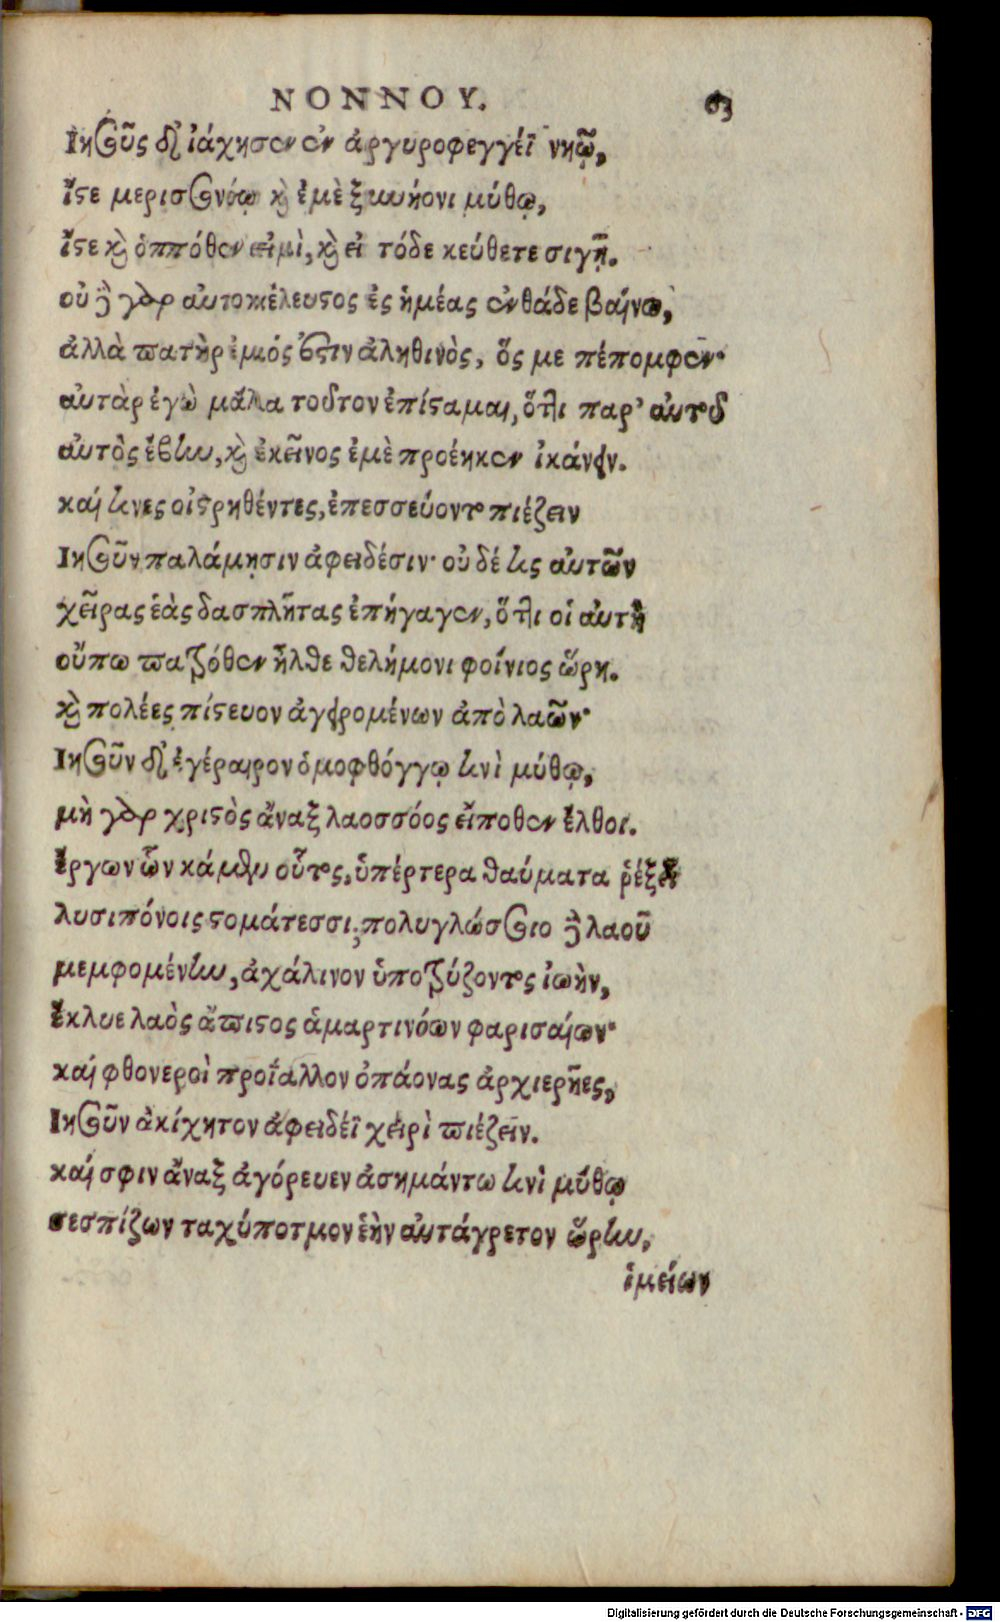 ΝΟΝΝΟΥ. 63
Ἰησοῦς δ' ἰάχησεν ἐν ἀργυροφεγγέϊ νηῷ,
ἴστε μερισονόῳ καὶ ἐμὲ ξυνήονι μύθῳ,
ἴστε καὶ ὁππόθεν εἰμὶ, καὶ εἰ τόδε κεύθετε σιγῇ.
οὐ δὲ γὰρ αὐτοκέλευστος ἐς ἡμέας ἐνθάδε βαίνω,
ἀλλὰ πατὴρ ἐμὸς ἔστιν ἀληθινὸς, ὅς με πέπομφεν·
αὐτὰρ ἐγὼ μάλα τοῦτον ἐπίσταμαι, ὅττι παρ' αὐτοῦ
αὐτὸς ἔβην, καὶ ἐκεῖνος ἐμὲ προέηκεν ἱκάνειν.
καί τινες οἰστρηθέντες, ἐπεσσεύοντο πιέζειν
Ἰησοῦν παλάμῃσιν ἀφειδέσιν· οὐδέ τις αὐτῶν
χεῖρας ἑὰς δασπλῆτας ἐπήγαγεν, ὅττι οἱ αὐτὴ
οὔπω πατρόθεν ἦλθε θελήμονι φοίνιος ὥρη.
καὶ πολέες πίστευον ἀγειρομένων ἀπὸ λαῶν·
Ἰησοῦν δ' ἐγέραιρον ὁμοφθόγγῳ τινὶ μύθῳ,
μὴ γὰρ χριστὸς ἄναξ λαοσσόος εἴποθεν ἔλθοι.
ἔργων ὧν κάμεν οὗτος, ὑπέρτερα θαύματα ῥέξει
λυσιπόνοις στομάτεσσι; πολυγλώσσοιο δὲ λαοῦ
μεμφομένην, ἀχάλινον ὑποτρύζοντος ἰωὴν,
ἔκλυε λαὸς ἄπιστος ἁμαρτινόων φαρισαίων·
καί φθονεροὶ προΐαλλον ὀπάονας ἀρχιερῆες,
Ἰησοῦν ἀκίχητον ἀφειδέϊ χειρὶ πιέζειν.
καί σφιν ἄναξ ἀγόρευεν ἀσημάντω τινὶ μύθῳ
θεσπίζων ταχύποτμον ἑὴν αὐτάγρετον ὥρην,
ὑμείων
Digitalisierung gefördert durch die Deutsche Forschungsgemeinschaft - DFG